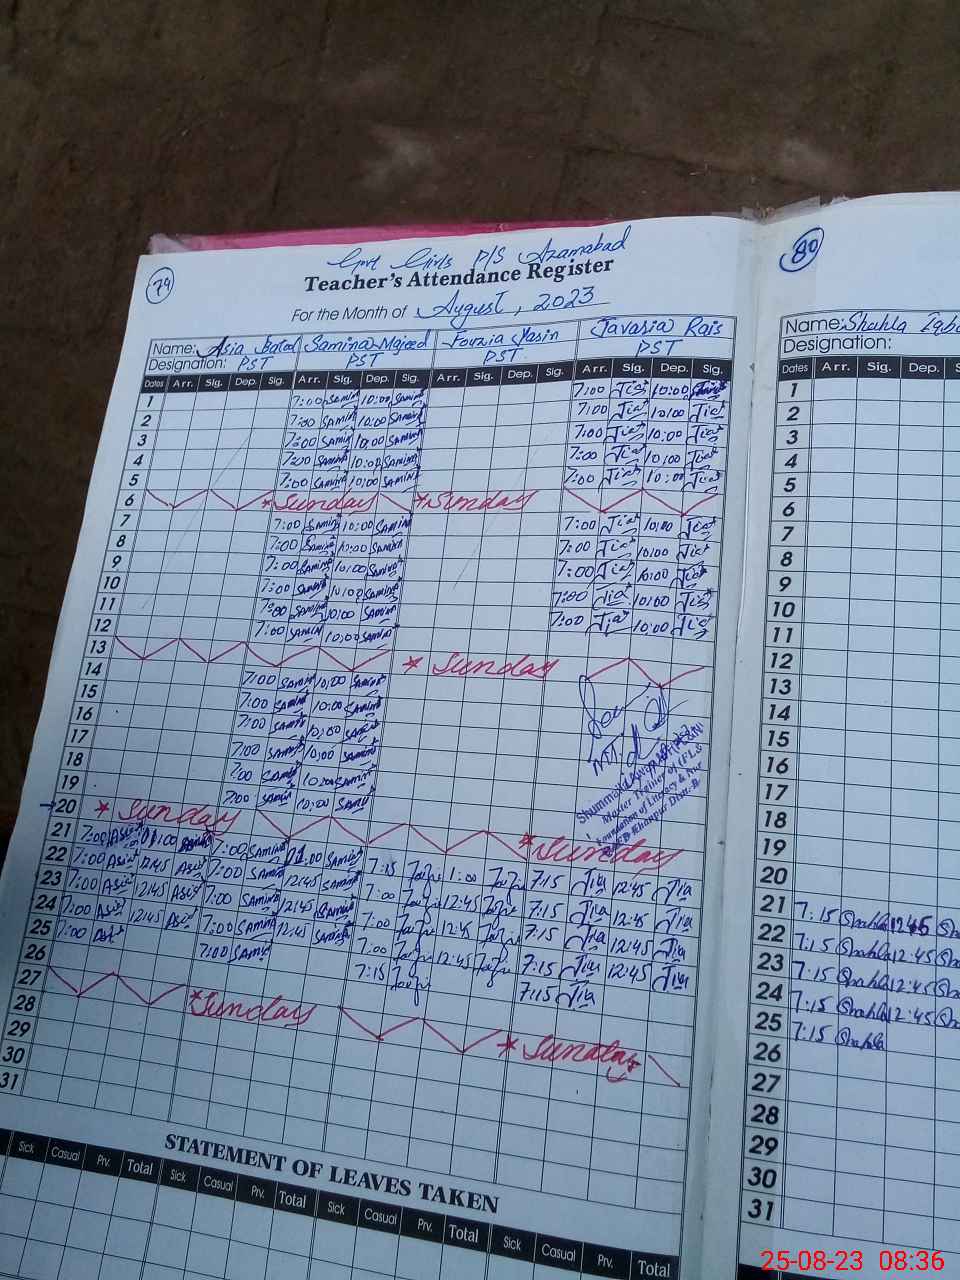 79
Govt Girls P/S Azamabad
Teacher's Attendance Register
For the Month of August, 2023
Name: Asia Batool Samina Majeed Fouzia Yasin Javaria Rais
Designation: PST PST PST. PST
Dates Arr. Sig. Dep. Sig. Arr. Sig. Dep. Sig. Arr. Sig. Dep. Sig. Arr. Sig. Dep. Sig.
1 7:00 Samina 10:00 Samina 7:00 Jia 10:00
2 7:00 Samina 10:00 Samina 7:00 Jia 10:00 Jia
3 7:00 Samina 10:00 Samina 7:00 Jia 10:00 Jia
4 7:00 Samina 10:00 Samina 7:00 Jia 10:00 Jia
5 7:00 Samina 10:00 Samina 7:00 Jia 10:00 Jia
6 * Sunday * Sunday
7 7:00 Samina 10:00 Samina 7:00 Jia 10:00 Jia
8 7:00 Samina 10:00 Samina 7:00 Jia 10:00 Jia
9 7:00 Samina 10:00 Samina 7:00 Jia 10:00 Jia
10 7:00 Samina 10:00 Samina 7:00 Jia 10:00 Jia
11 7:00 Samina 10:00 Samina 7:00 Jia 10:00 Jia
12 7:00 Samina 10:00 Samina
13 * Sunday
14 7:00 Samina 10:00 Samina
15 7:00 Samina 10:00 Samina
16 7:00 Samina 10:00 Samina
17 7:00 Samina 10:00 Samina
18 7:00 Samina 10:00 Samina
19 7:00 Samina 10:00 Samina
Master Trainer of (FLS
Foundation of Literacy &
Khanpur Distt.
20 * Sunday * Sunday
21 7:00 Asia 7:00 Samina Samina 7:15 1:00 7:15 Jia 12:45 Jia
22 7:00 Asia 12:45 Asia 7:00 Samina 12:45 Samina 7:00 12:45 7:15 Jia 12:45 Jia
23 7:00 Asia 12:45 Asia 7:00 Samina 12:45 Samina 7:00 12:45 7:15 Jia 12:45 Jia
24 7:00 Asia 12:45 Asia 7:00 Samina 12:45 Samina 7:00 12:45 7:15 Jia 12:45 Jia
25 7:00 Asia 7:00 Samina 7:15 7:15 Jia
26
27 * Sunday * Sunday
28
29
30
31
STATEMENT OF LEAVES TAKEN
Sick Casual Prv. Total Sick Casual Prv. Total Sick Casual Prv. Total Sick Casual Prv. Total
80
Name: Shahla
Designation:
Dates Arr. Sig. Dep.
1
2
3
4
5
6
7
8
9
10
11
12
13
14
15
16
17
18
19
20
21 7:15 Shahla 12:45
22 7:15 Shahla 12:45
23 7:15 Shahla 12:45
24 7:15 Shahla 12:45
25 7:15 Shahla
26
27
28
29
30
31
25-08-23 08:36